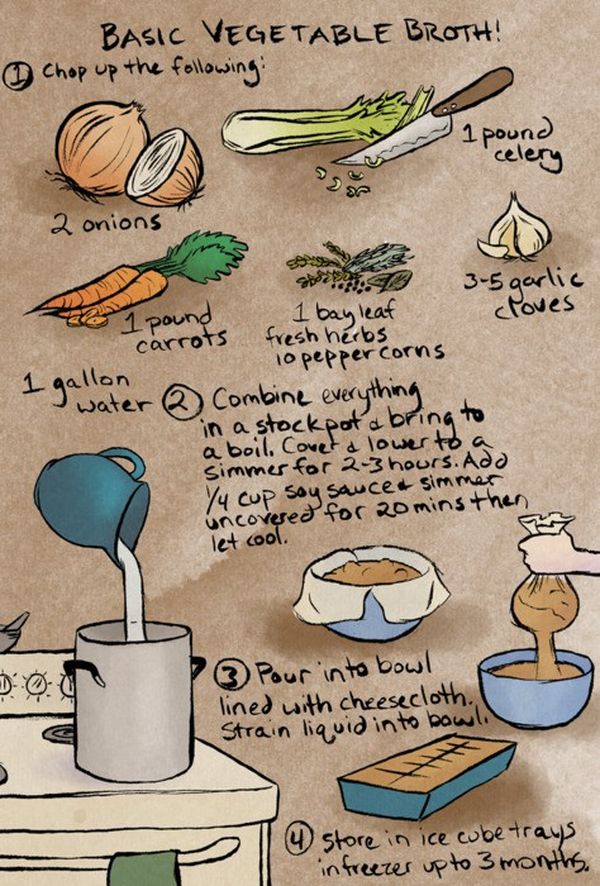 BASIC VEGETABLE BROTH!
1 Chop up the following:
2 onions
1 pound
celery
1 pound
carrots
1 bay leaf
fresh herbs
10 pepper corns
3-5 garlic
cloves
1 gallon
water
2 Combine everything
in a stockpot & bring to
a boil. Cover & lower to a
simmer for 2-3 hours. Add
1/4 cup soy sauce & simmer
uncovered for 20 mins then
let cool.
3 Pour into bowl
lined with cheesecloth.
Strain liquid into bowl.
4 Store in ice cube trays
in freezer up to 3 months.